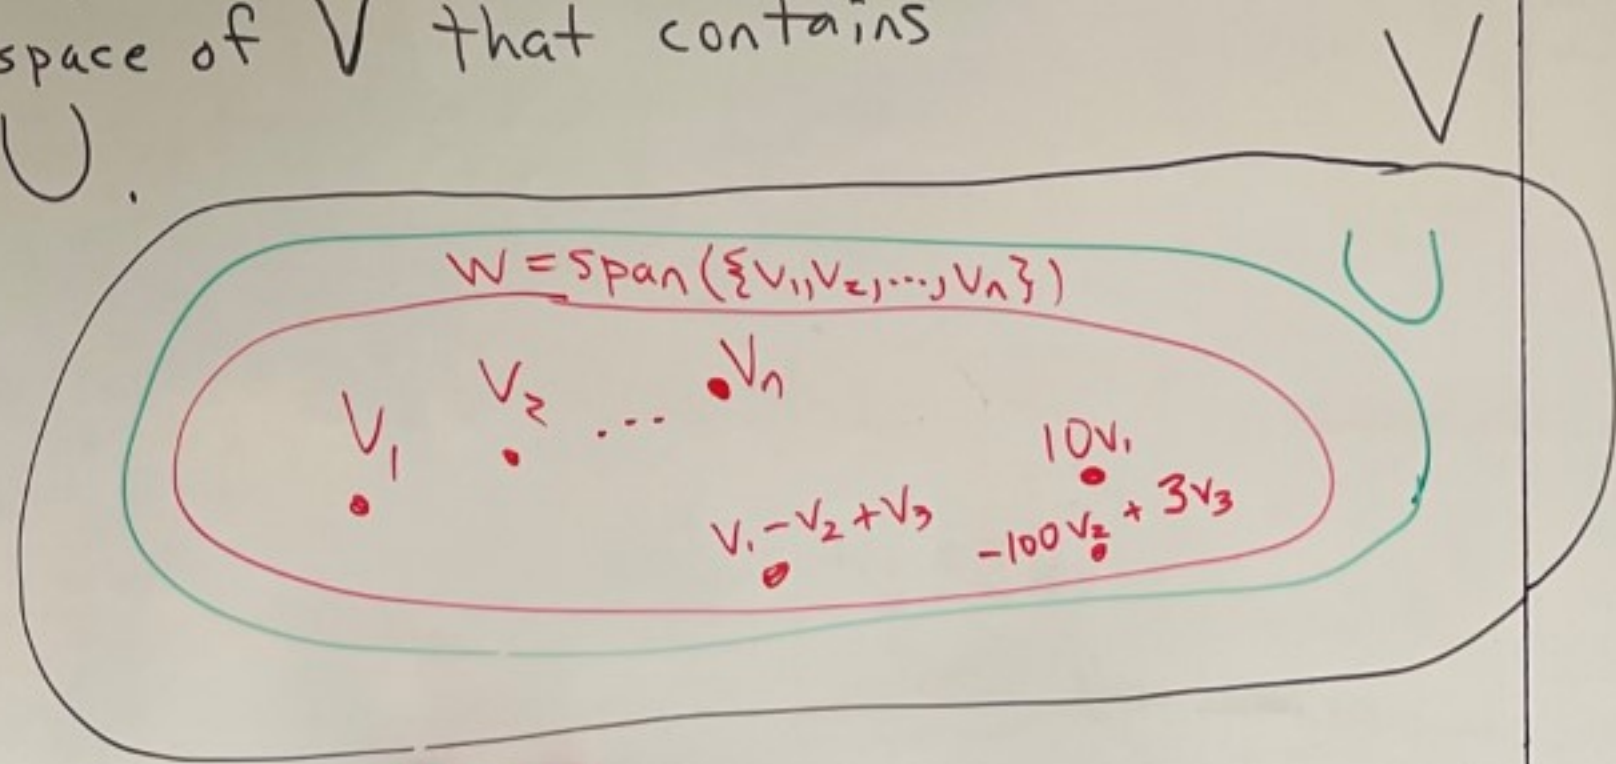 space of V that contains
U.
V
U
W = span({v₁,v₂,...,vₙ})
V₁
V₂
...
Vₙ
10v₁
v₁-v₂+v₃
-100v₂ + 3v₃